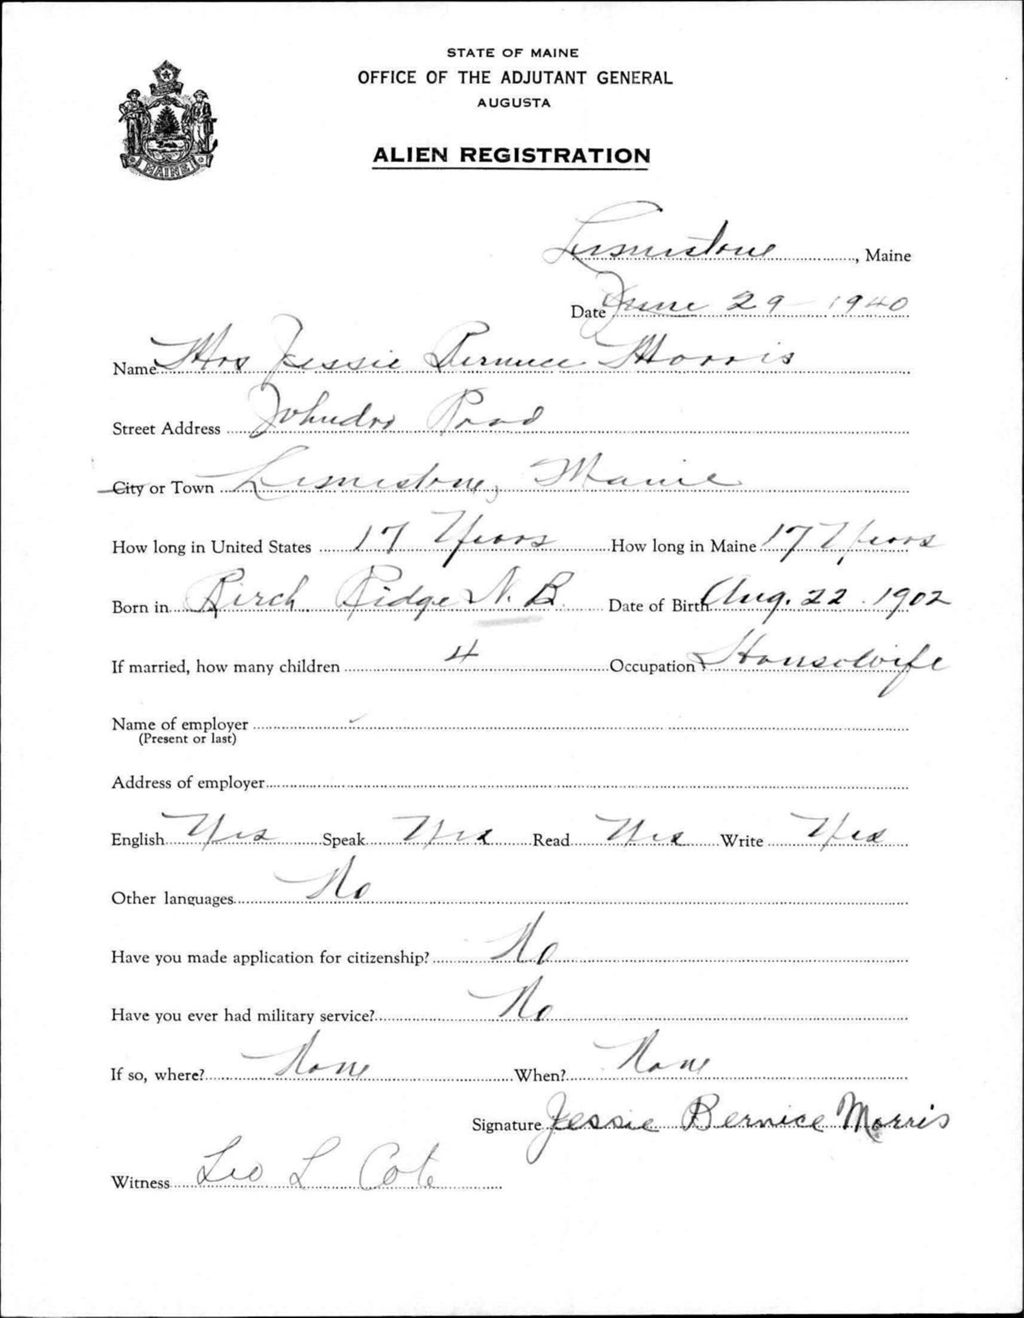 STATE OF MAINE
OFFICE OF THE ADJUTANT GENERAL
AUGUSTA
ALIEN REGISTRATION
MAINE
Limestone, Maine
Date June 29 1940
Name Mrs Jessie Bernice Morris
Street Address Road
City or Town Limestone, Maine
How long in United States 17 Years How long in Maine 17 Years
Born in Birch Ridge N.B. Date of Birth Aug. 22 1902
If married, how many children 4 Occupation Housewife
Name of employer
(Present or last)
Address of employer
English Yes Speak Yes Read Yes Write Yes
Other languages No
Have you made application for citizenship? No
Have you ever had military service? No
If so, where? None When? None
Signature Jessie Bernice Morris
Witness Leo L Cote